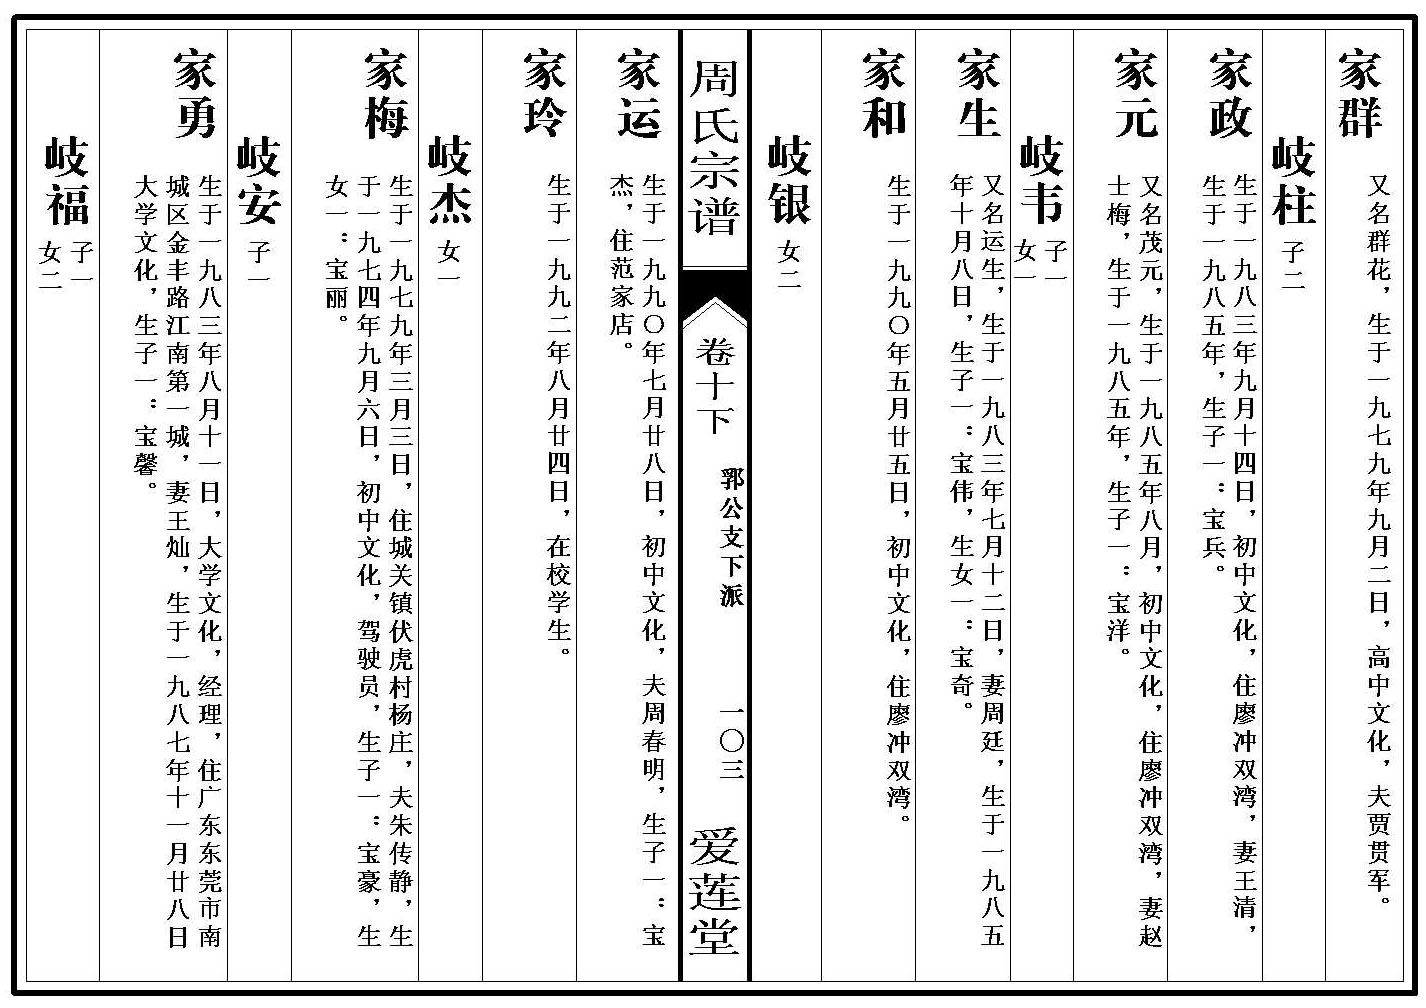 家群
又名群花，生于一九七九年九月二日，高中文化，夫贾贯军。
岐柱
子二
家政
生于一九八三年九月十四日，初中文化，住廖冲双湾，妻王清，
生于一九八五年，生子一：宝兵。
家元
又名茂元，生于一九八五年八月，初中文化，住廖冲双湾，妻赵
士梅，生于一九八五年，生子一：宝洋。
岐韦
子一
女一
家生
又名运生，生于一九八三年七月十二日，妻周廷，生于一九八五
年十月八日，生子一：宝伟，生女一：宝奇。
家和
生于一九九〇年五月廿五日，初中文化，住廖冲双湾。
岐银
女二
周氏宗谱
卷十下
郛公支下派
一〇三
爱莲堂
家运
生于一九九〇年七月廿八日，初中文化，夫周春明，生子一：宝
杰，住范家店。
家玲
生于一九九二年八月廿四日，在校学生。
岐杰
女一
家梅
生于一九七九年三月三日，住城关镇伏虎村杨庄，夫朱传静，生
于一九七四年九月六日，初中文化，驾驶员，生子一：宝豪，生
女一：宝丽。
岐安
子一
家勇
生于一九八三年八月十一日，大学文化，经理，住广东东莞市南
城区金丰路江南第一城，妻王灿，生于一九八七年十一月廿八日
大学文化，生子一：宝馨。
岐福
子一
女二